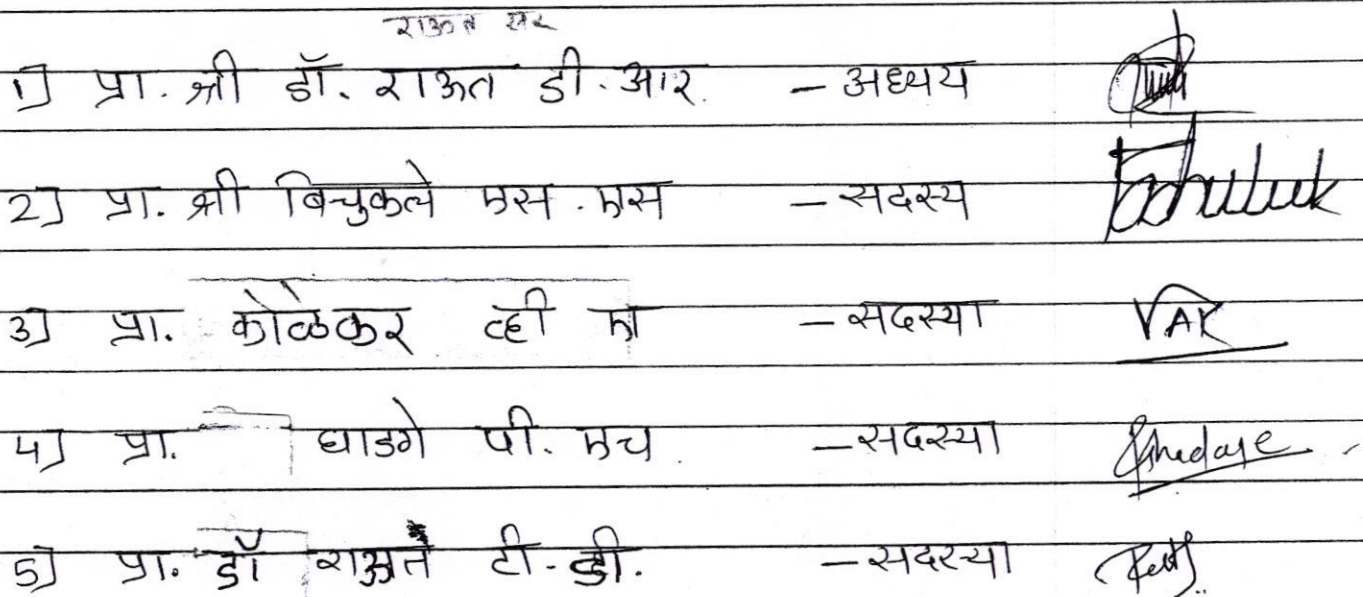 राऊत सर
1] प्रा. श्री डॉ. राऊत डी. आर. - अध्यय
2] प्रा. श्री बिचुकले एस. एस - सदस्य
3] प्रा. कोळेकर व्ही ए - सदस्या VAK
4] प्रा. घाडगे पी. एच. - सदस्या Ghadage
5] प्रा. डॉ राऊत टी. डी. - सदस्या